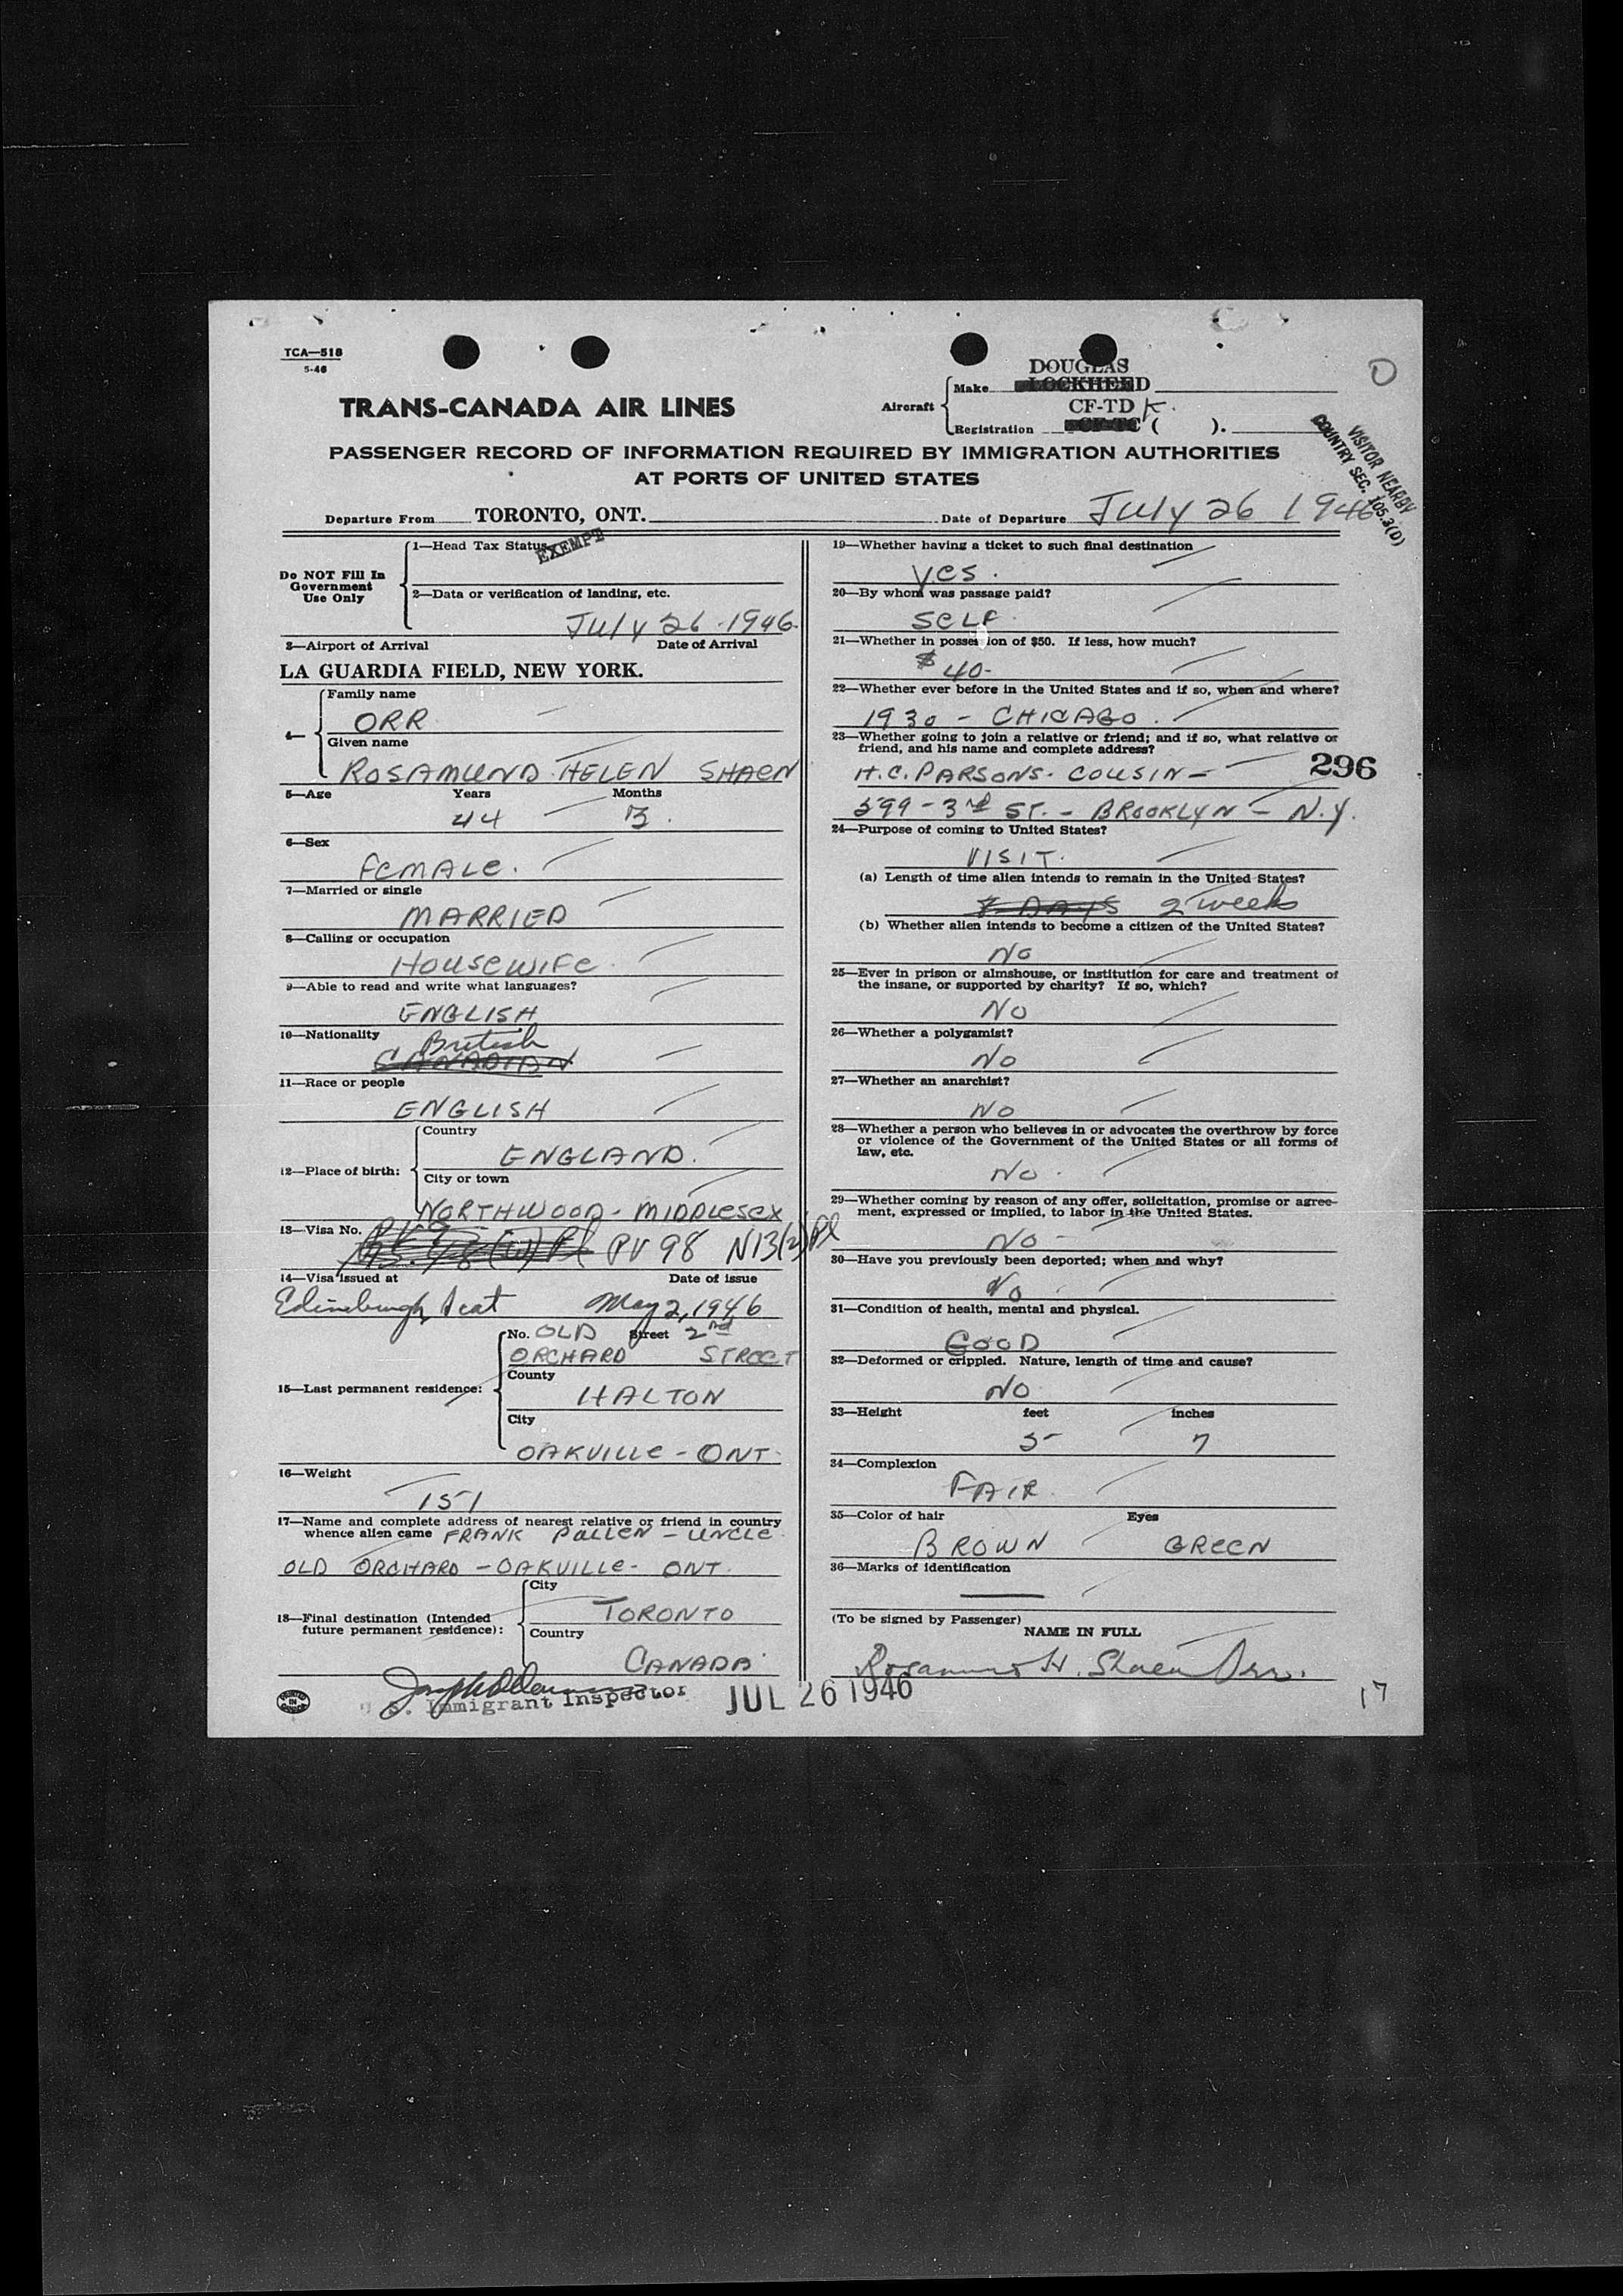 TCA—518
5-46
DOUGLAS
Make LOCKHEED
TRANS-CANADA AIR LINES
Aircraft
CF-TD K.
Registration CF-TC ( ).
VISITOR NEARBY
COUNTRY SEC. 105.3(D)
PASSENGER RECORD OF INFORMATION REQUIRED BY IMMIGRATION AUTHORITIES
AT PORTS OF UNITED STATES
Departure From TORONTO, ONT. Date of Departure July 26 1946
Do NOT Fill In
Government
Use Only
1—Head Tax Status EXEMPT
2—Data or verification of landing, etc.
July 26 - 1946.
3—Airport of Arrival Date of Arrival
LA GUARDIA FIELD, NEW YORK.
4—
Family name
ORR
Given name
ROSAMUND HELEN SHAEN
5—Age Years Months
44 3.
6—Sex
FEMALE.
7—Married or single
MARRIED
8—Calling or occupation
HOUSEWIFE.
9—Able to read and write what languages?
ENGLISH
10—Nationality British
CANADIAN
11—Race or people
ENGLISH
12—Place of birth:
Country
ENGLAND.
City or town
NORTHWOOD - MIDDLESEX
13—Visa No.
PV 98 N13(2)
14—Visa issued at Date of issue
Edinburgh, Scot May 2, 1946
15—Last permanent residence:
No. OLD Street 2nd
ORCHARD STREET
County
HALTON
City
OAKVILLE - ONT.
16—Weight
151
17—Name and complete address of nearest relative or friend in country
whence alien came FRANK PULLEN - UNCLE
OLD ORCHARD - OAKVILLE - ONT.
18—Final destination (Intended
future permanent residence):
City
TORONTO
Country
CANADA
Immigrant Inspector
JUL 26 1946
19—Whether having a ticket to such final destination
YES.
20—By whom was passage paid?
SELF
21—Whether in possession of $50. If less, how much?
$ 40-
22—Whether ever before in the United States and if so, when and where?
1930 - CHICAGO.
23—Whether going to join a relative or friend; and if so, what relative or
friend, and his name and complete address?
296
H.C. PARSONS - COUSIN -
599 - 3rd ST. - BROOKLYN - N.Y.
24—Purpose of coming to United States?
VISIT.
(a) Length of time alien intends to remain in the United States?
7 DAYS 2 weeks
(b) Whether alien intends to become a citizen of the United States?
NO
25—Ever in prison or almshouse, or institution for care and treatment of
the insane, or supported by charity? If so, which?
NO
26—Whether a polygamist?
NO
27—Whether an anarchist?
NO
28—Whether a person who believes in or advocates the overthrow by force
or violence of the Government of the United States or all forms of
law, etc.
NO.
29—Whether coming by reason of any offer, solicitation, promise or agree-
ment, expressed or implied, to labor in the United States.
NO -
30—Have you previously been deported; when and why?
NO.
31—Condition of health, mental and physical.
GOOD
32—Deformed or crippled. Nature, length of time and cause?
NO
33—Height feet inches
5 7
34—Complexion
FAIR.
35—Color of hair Eyes
BROWN GREEN
36—Marks of identification
—
(To be signed by Passenger)
NAME IN FULL
Rosamund H. Shaen Orr.
17